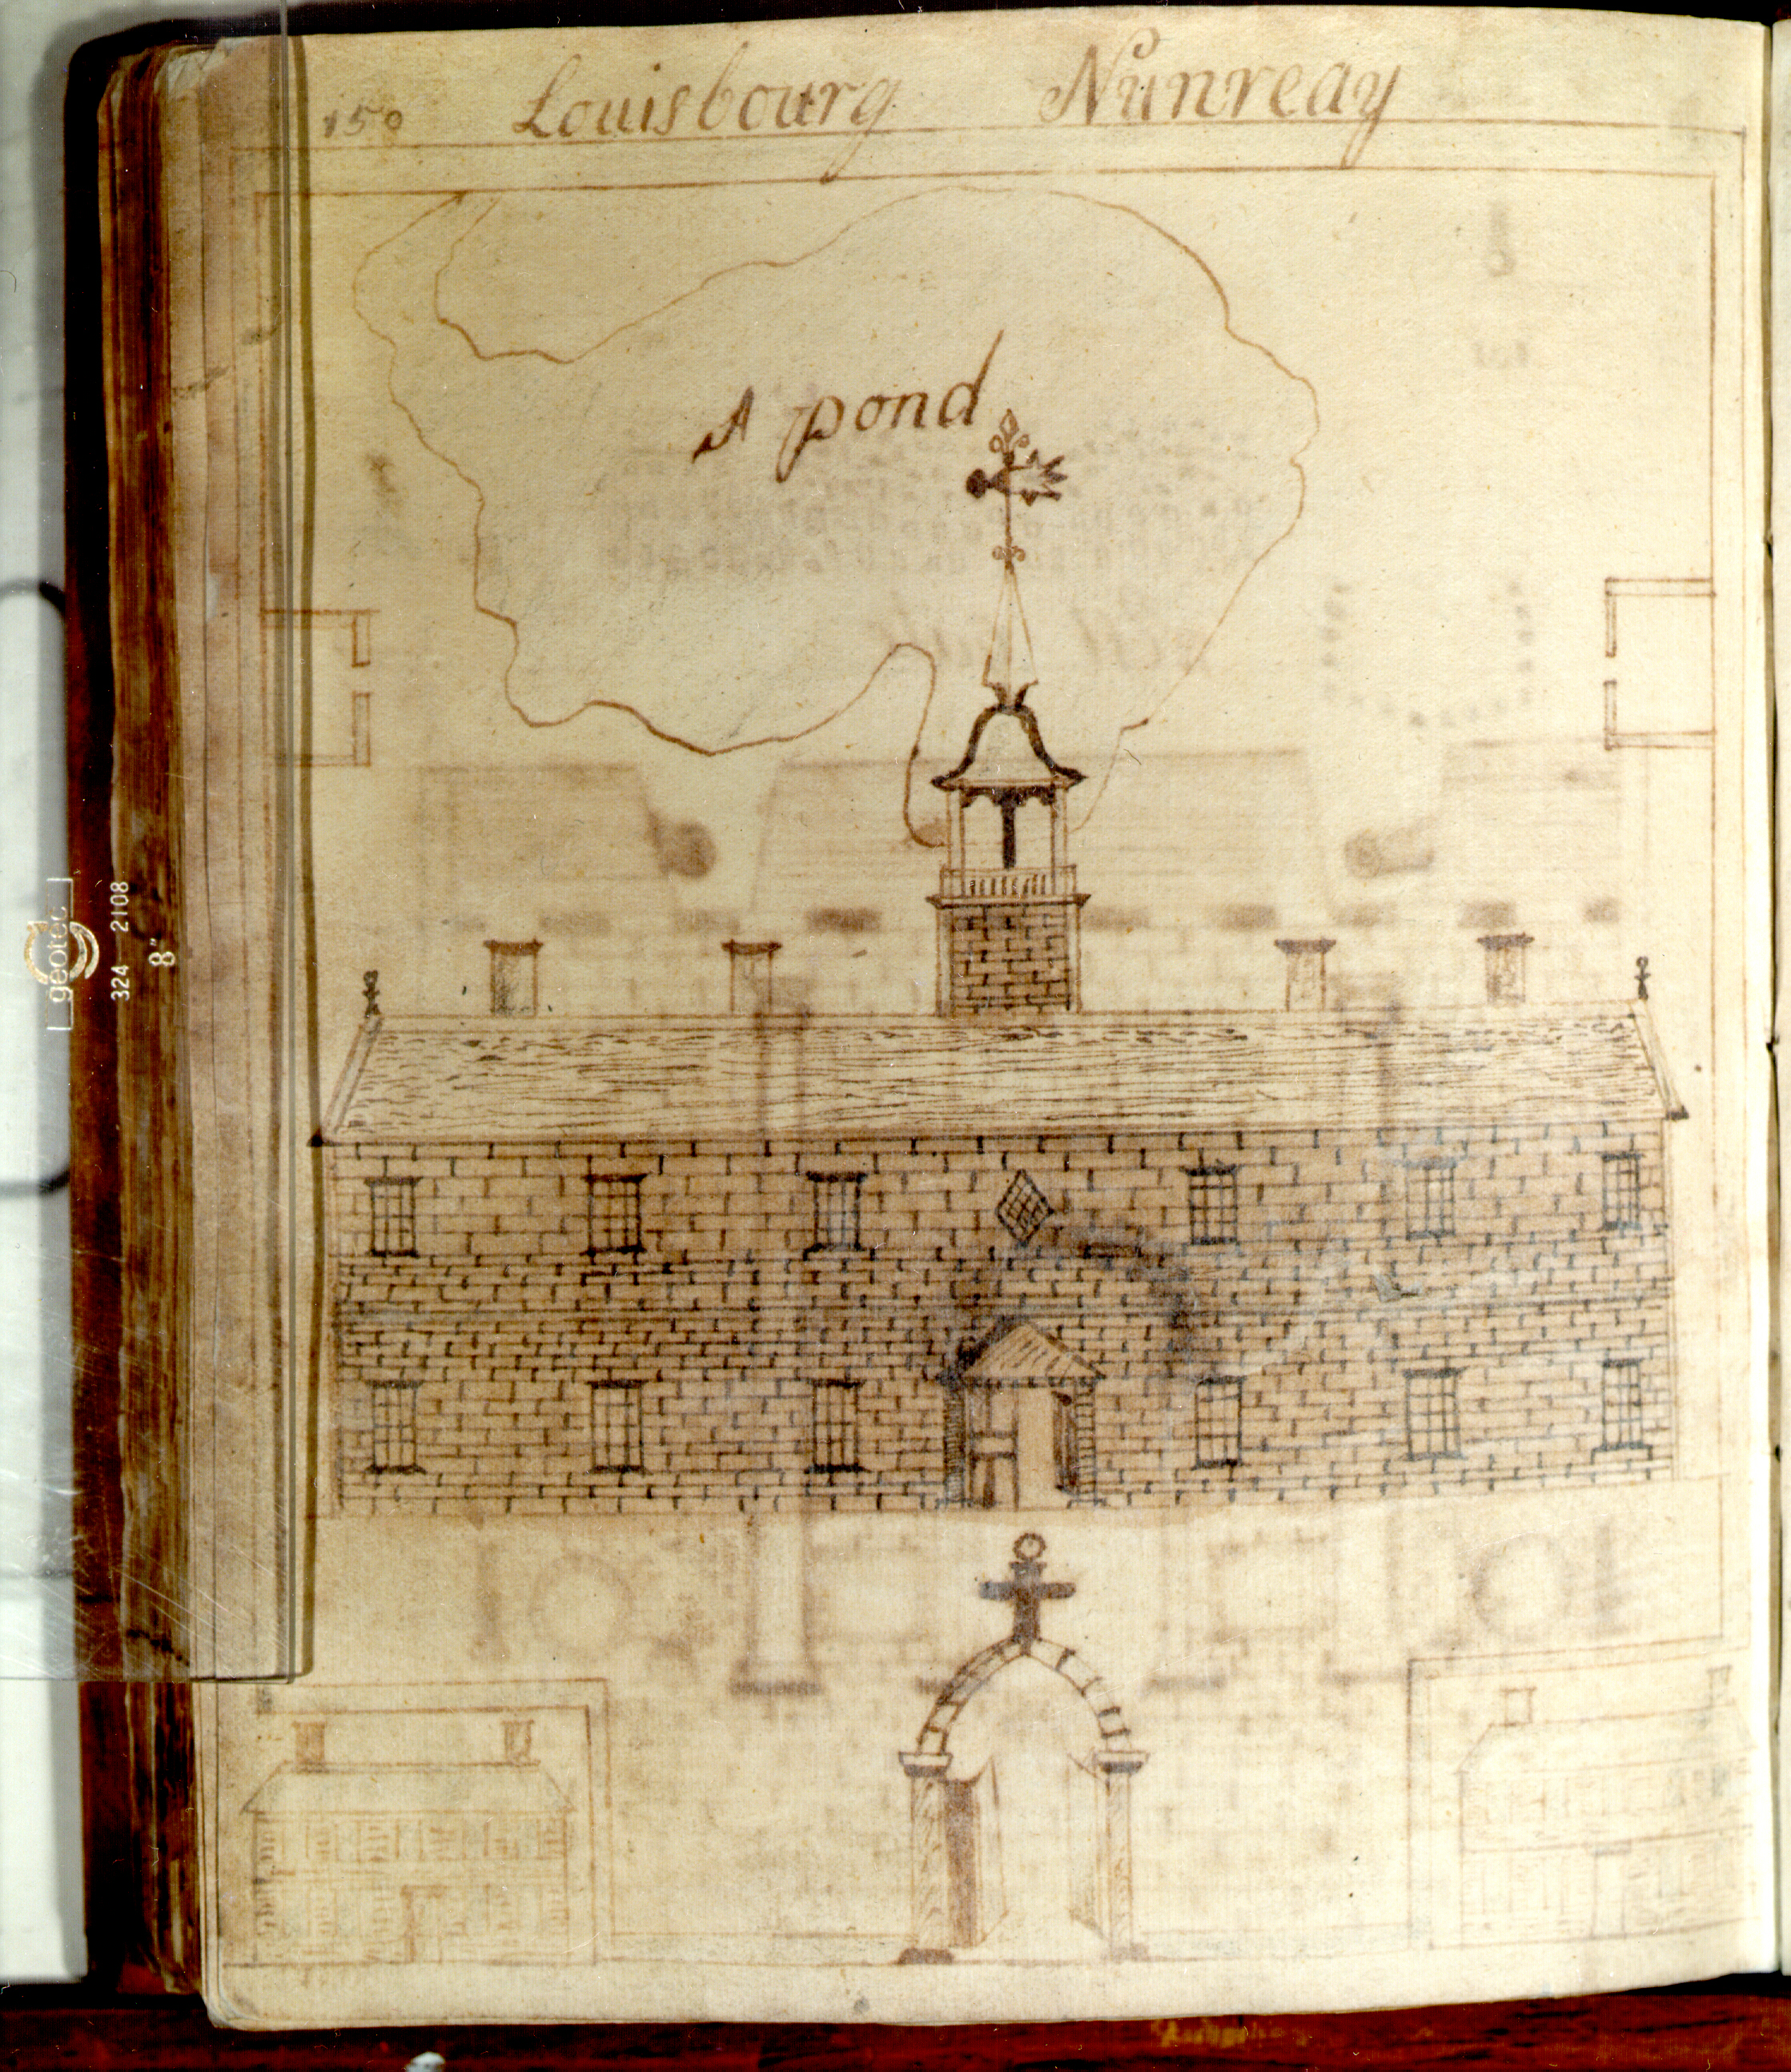 150 Louisbourg Nunreay
A pond
geotec
324 2108
8"